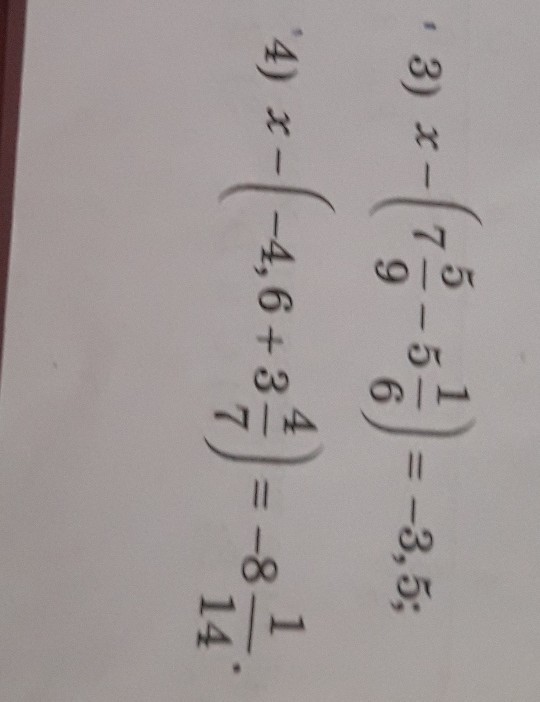 3) x − (7 5/9 − 5 1/6) = −3,5;
4) x − (−4,6 + 3 4/7) = −8 1/14.